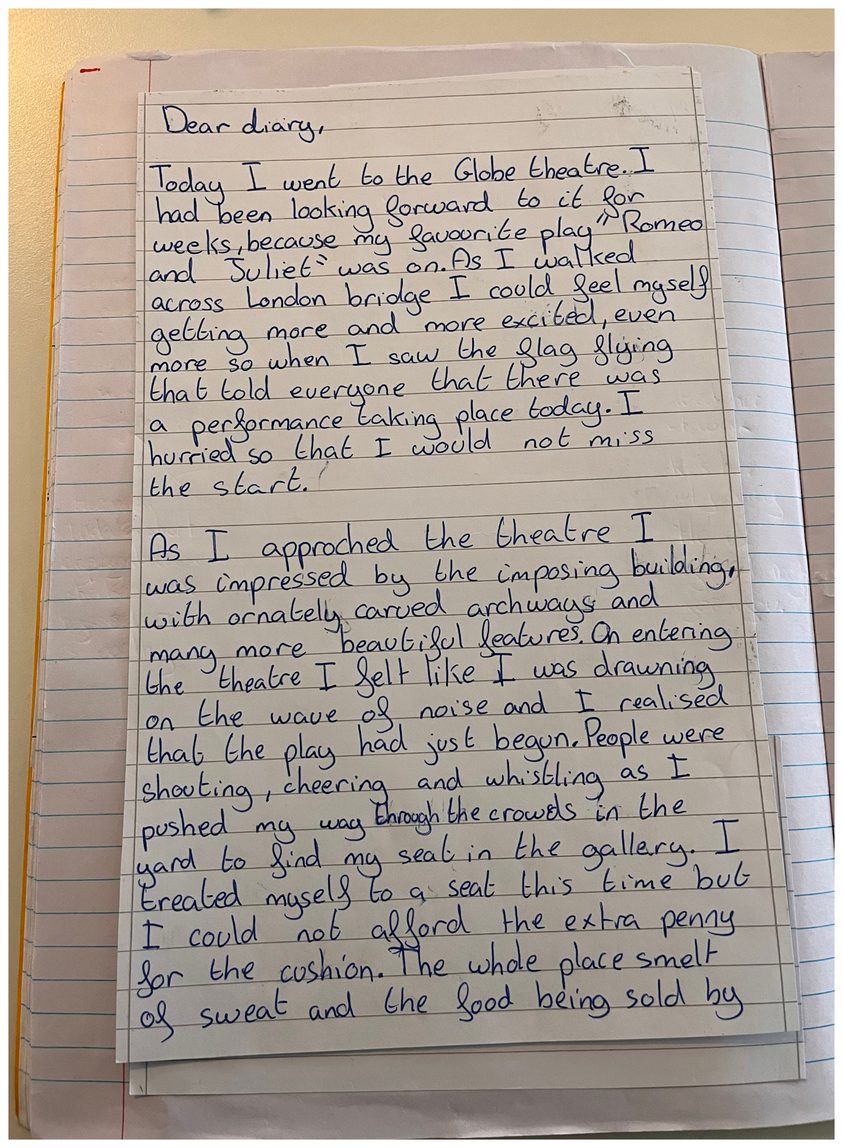 Dear diary,
Today I went to the Globe theatre. I
had been looking forward to it for
weeks, because my favourite play " Romeo
and Juliet" was on. As I walked
across London bridge I could feel myself
getting more and more excited, even
more so when I saw the flag flying
that told everyone that there was
a performance taking place today. I
hurried so that I would not miss
the start.
As I approched the theatre I
was impressed by the imposing building,
with ornately carved archways and
many more beautiful features. On entering
the theatre I felt like I was drawning
on the wave of noise and I realised
that the play had just begun. People were
shouting, cheering and whistling as I
pushed my way through the crowds in the
yard to find my seat in the gallery. I
treated myself to a seat this time but
I could not afford the extra penny
for the cushion. The whole place smelt
of sweat and the food being sold by